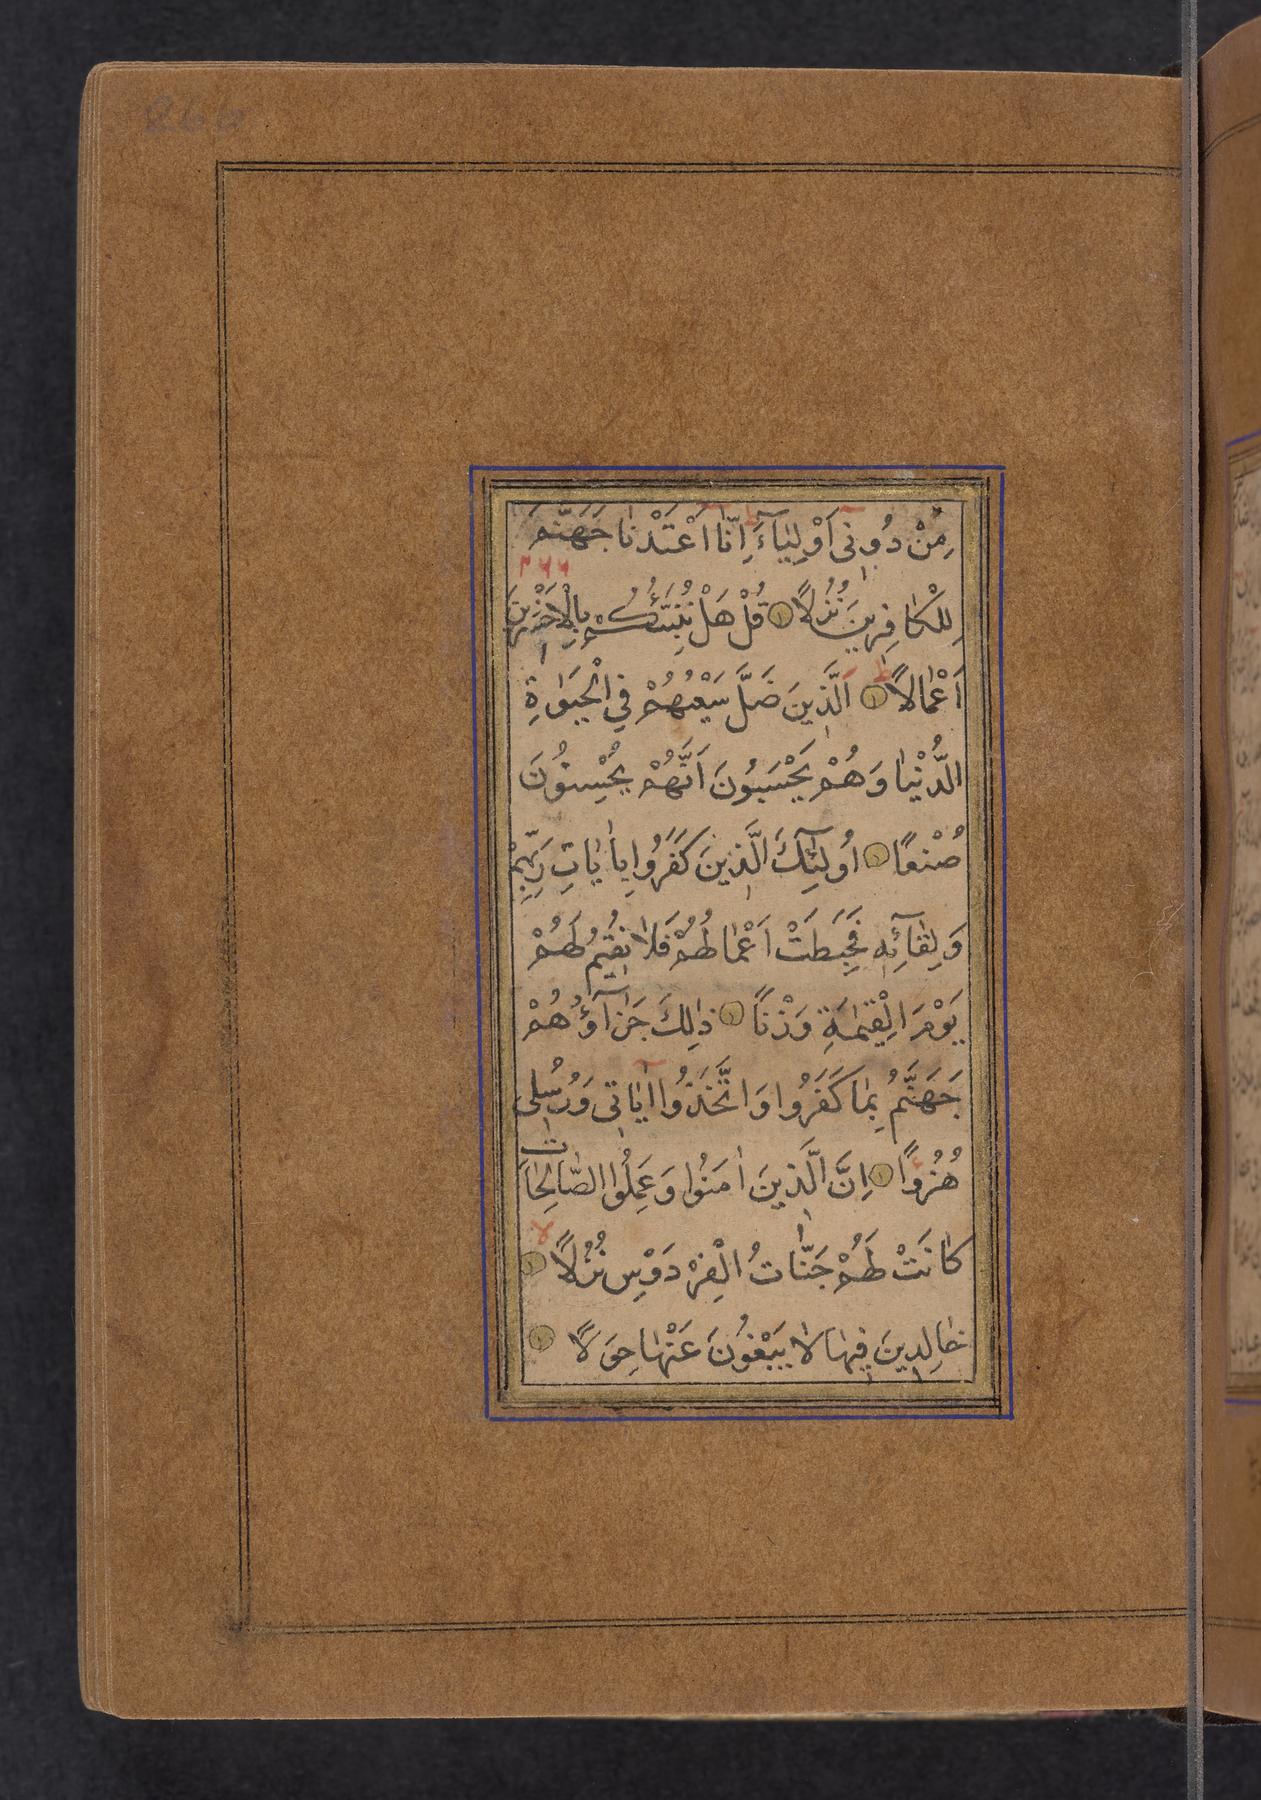 مِنْ دُونِي اَوْلِيَاءَ اِنَّا اَعْتَدْنَا جَهَنَّمَ
لِلْكَافِرِينَ نُزُلًا قُلْ هَلْ نُنَبِّئُكُمْ بِالْاَخْسَرِينَ
اَعْمَالًا اَلَّذِينَ ضَلَّ سَعْيُهُمْ فِي الْحَيٰوةِ
الدُّنْيَا وَهُمْ يَحْسَبُونَ اَنَّهُمْ يُحْسِنُونَ
صُنْعًا اُولٰئِكَ الَّذِينَ كَفَرُوا بِاٰيَاتِ رَبِّهِمْ
وَلِقَائِهٖ فَحَبِطَتْ اَعْمَالُهُمْ فَلَا نُقِيمُ لَهُمْ
يَوْمَ الْقِيٰمَةِ وَزْنًا ذٰلِكَ جَزَاؤُهُمْ
جَهَنَّمُ بِمَا كَفَرُوا وَاتَّخَذُوا اٰيَاتِي وَرُسُلِي
هُزُوًا اِنَّ الَّذِينَ اٰمَنُوا وَعَمِلُوا الصَّالِحَاتِ
كَانَتْ لَهُمْ جَنَّاتُ الْفِرْدَوْسِ نُزُلًا
خَالِدِينَ فِيهَا لَا يَبْغُونَ عَنْهَا حِوَلًا